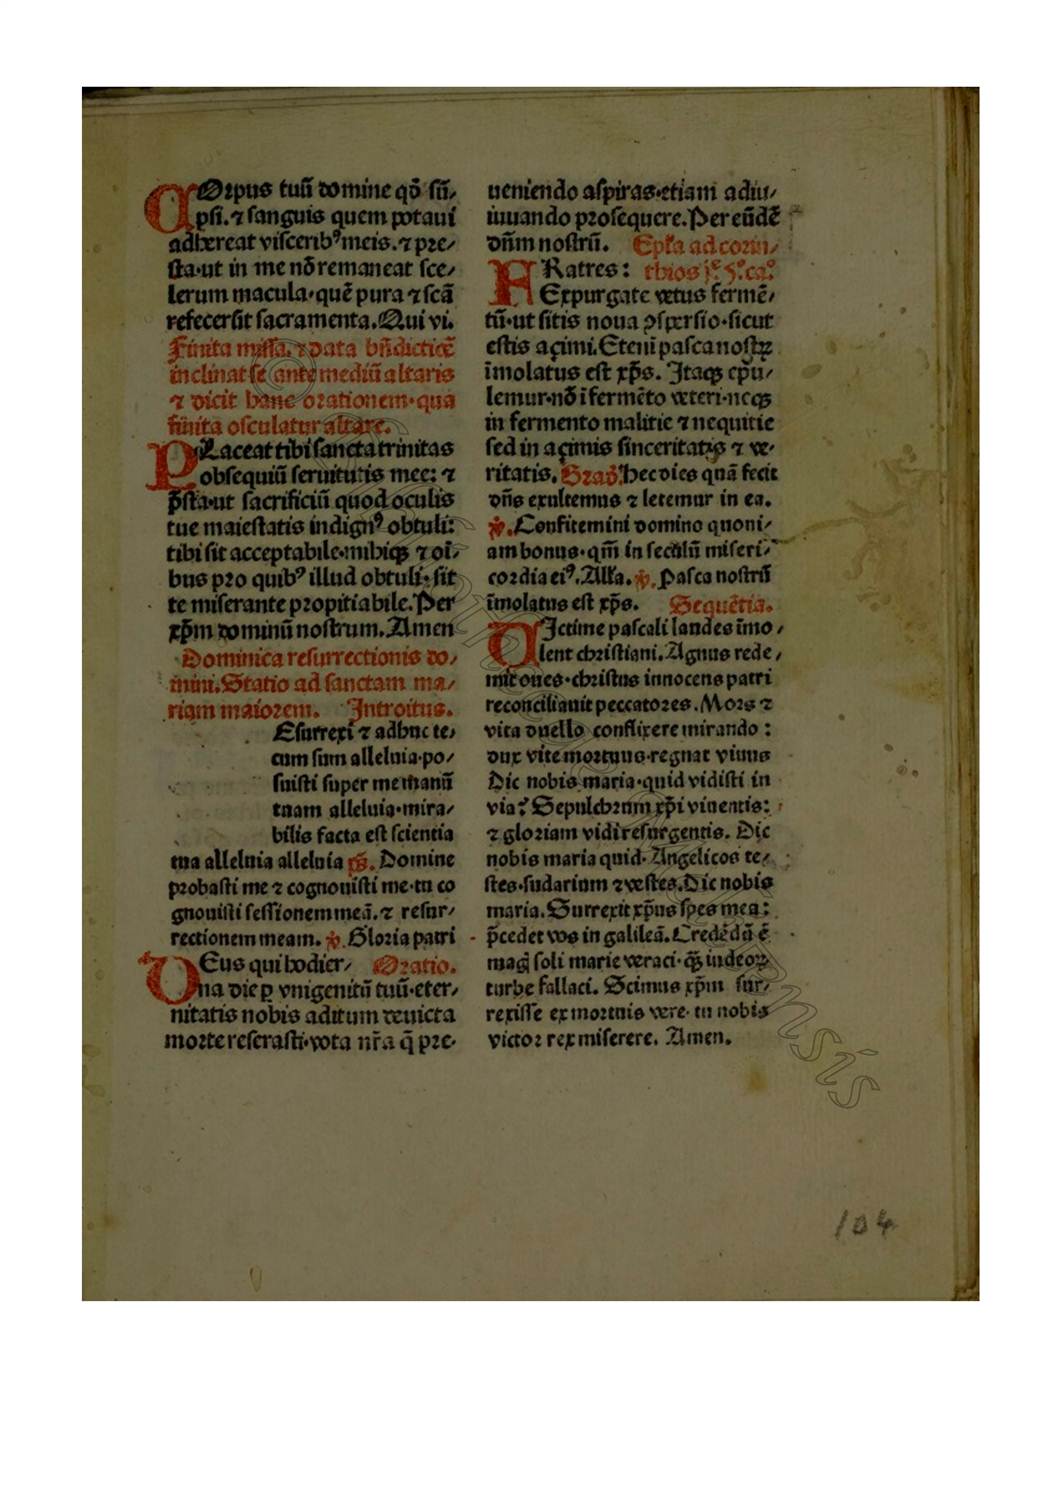 COrpus tuū domine qđ sū/
psi.⁊ sanguis quem potaui
adhereat visceribꝰ meis.⁊ pre/
sta·ut in me nō remaneat sce/
lerum macula·quē pura ⁊ scā
refecerūt sacramenta.Qui vi.
Finita missa.⁊ data bn̄dictiōe
inclinat se ante mediū altaris
⁊ dicit hanc orationem·qua
finita osculatur altare.
PLaceat tibi sancta trinitas
obsequiū seruitutis mee: ⁊
p̄sta·ut sacrificiū quod oculis
tue maiestatis indignꝰ obtuli:
tibi sit acceptabile·mihiqꝫ ⁊ oī/
bus pro quibꝰ illud obtuli·sit
te miserante propitiabile.Per
xp̄m dominū nostrum.Amen
Dominica resurrectionis do/
mini.Statio ad sanctam ma/
riam maiorem. Introitus.
Esurrexi ⁊ adhuc te/
cum sum alleluia·po/
suisti super me manū
tuam alleluia·mira/
bilis facta est scientia
tua alleluia alleluia ps̄. Domine
probasti me ⁊ cognouisti me·tu co
gnouisti sessionem meā.⁊ resur/
rectionem meam. ℣. Gloria patri
DEus qui hodier/ Oratio.
na die ꝑ vnigenitū tuū·eter/
nitatis nobis aditum deuicta
morte reserasti·vota nr̄a q̄ pre·
ueniendo aspiras·etiam adiu/
iuuando prosequere.Per eūdē
dn̄m nostrū. Epl̄a ad corin/
FRatres: thios
Expurgate vetus fermē/
tū·ut sitis noua ꝯspersio·sicut
estis açimi.Etenī pasca nostrꝫ
īmolatus est xp̄s. Itaqꝫ epu/
lemur·nō ī fermēto veteri·neqꝫ
in fermento malitie ⁊ nequitie
sed in açimis sinceritatis ⁊ ve·
ritatis. Grad̄. Hec dies quā fecit
dn̄s exultemus ⁊ letemur in ea.
℣. Confitemini domino quoni/
am bonus·qm̄ in seculū miseri/
cordia eiꝰ.All'a. ℣. Pasca nostrū
īmolatus est xp̄s. Sequētia.
VIctime pascali laudes īmo/
lent christiani.Agnus rede/
mit oues·christus innocens patri
reconciliauit peccatores.Mors ⁊
vita duello conflixere mirando:
dux vite mortuus·regnat viuus
Dic nobis maria·quid vidisti in
via? Sepulchrum xp̄i viuentis:
⁊ gloriam vidi resurgentis. Dic
nobis maria quid· Angelicos te/
stes·sudarium ⁊ vestes.Dic nobis
maria.Surrexit xp̄us spes mea:
p̄cedet vos in galileā.Credēdū ē
mag̣ soli marie veraci·q̄ꝫ iudeoꝝ
turbe fallaci. Scimus xp̄m sur/
rexisse ex mortuis vere· tu nobis
victor rex miserere. Amen.
104